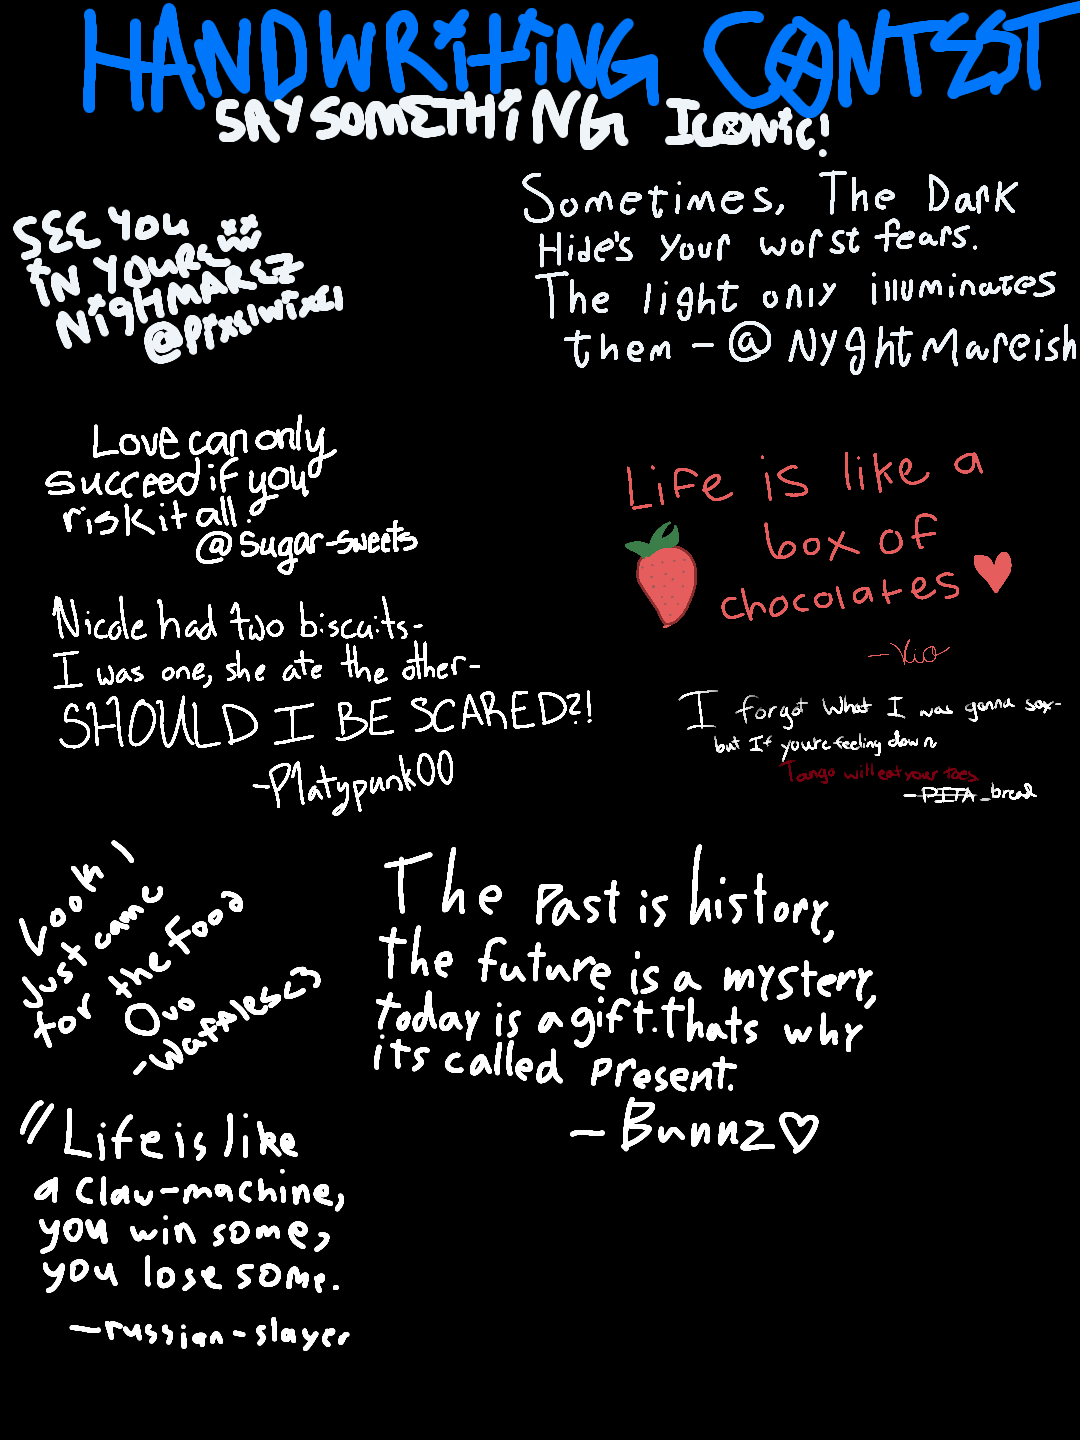 HANDWRiTiNG CONTEST
SAY SOMETHiNG ICONiC!
SEE YOU
iN YOURE
NiGHMAREZ
Sometimes, The Dark
Hide's Your worst fears.
The light only illuminates
them - @ NYghtMareish
Love can only
succeed if you
risk it all.
@Sugar-sweets
Life is like a
box of
chocolates ♥
-Xio
Nicole had two biscuits-
I was one, she ate the other-
SHOULD I BE SCARED?!
-Platypunk00
I forgot What I was gonna say-
but If you're feeling down
Tango will eat your toes
-PITA_bread
Look I
Just came
for the Food
OvO
-Waffles<3
The Past is history,
the future is a mystery,
today is a gift. thats why
its called present.
- Bunnz♡
"Life is like
a Claw-machine,
you win some,
you lose some.
-russian-slayer